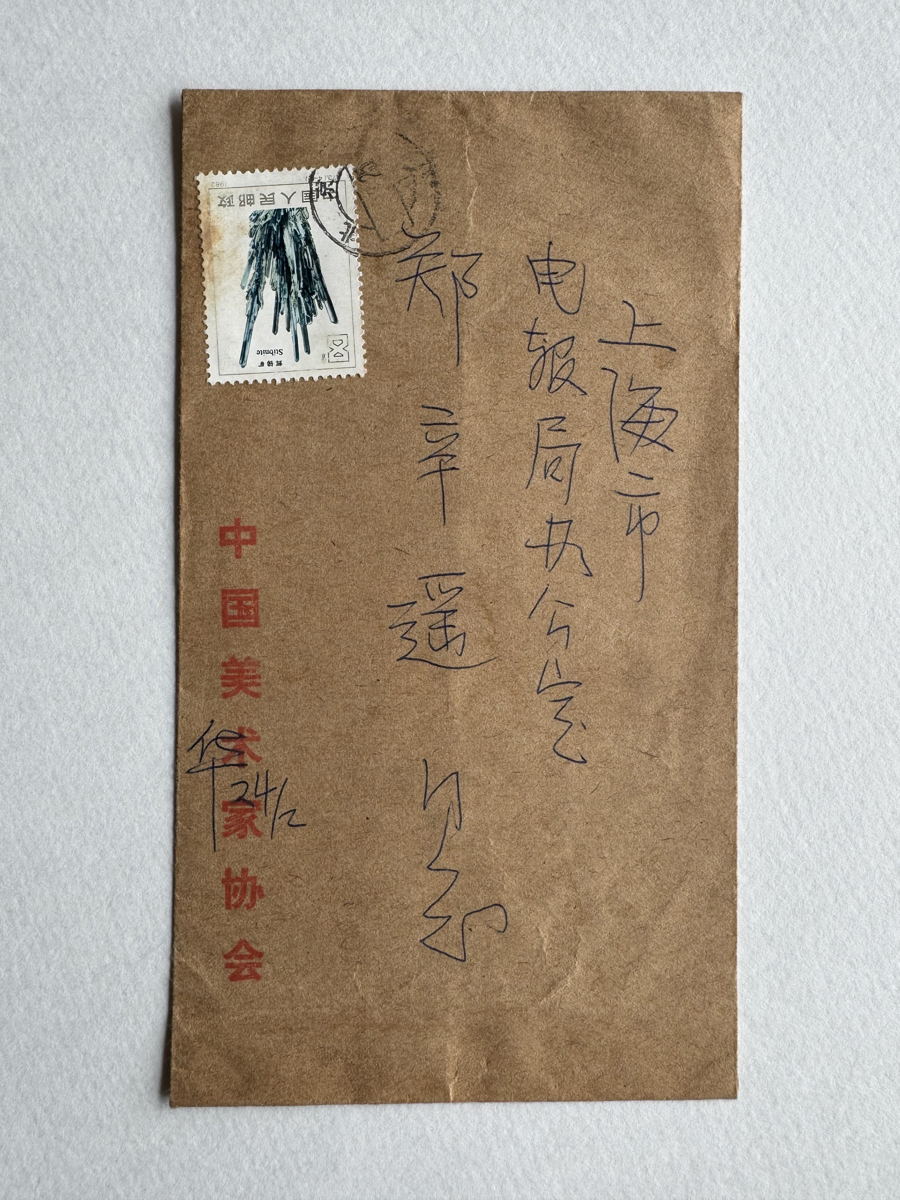 上海市
电报局办公室
郑辛遥 同志
中国美术家协会
华
24/2
中国人民邮政
1982
辉锑矿
Stibnite
北